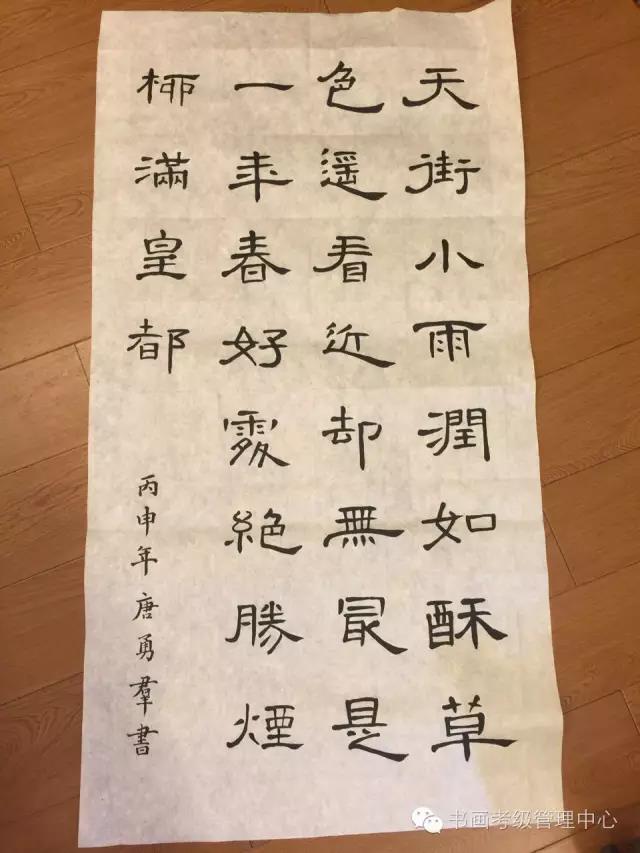 天街小雨潤如酥草
色遥看近却無冣是
一年春好處絶勝煙
桺滿皇都
丙申年唐勇羣書
书画考级管理中心